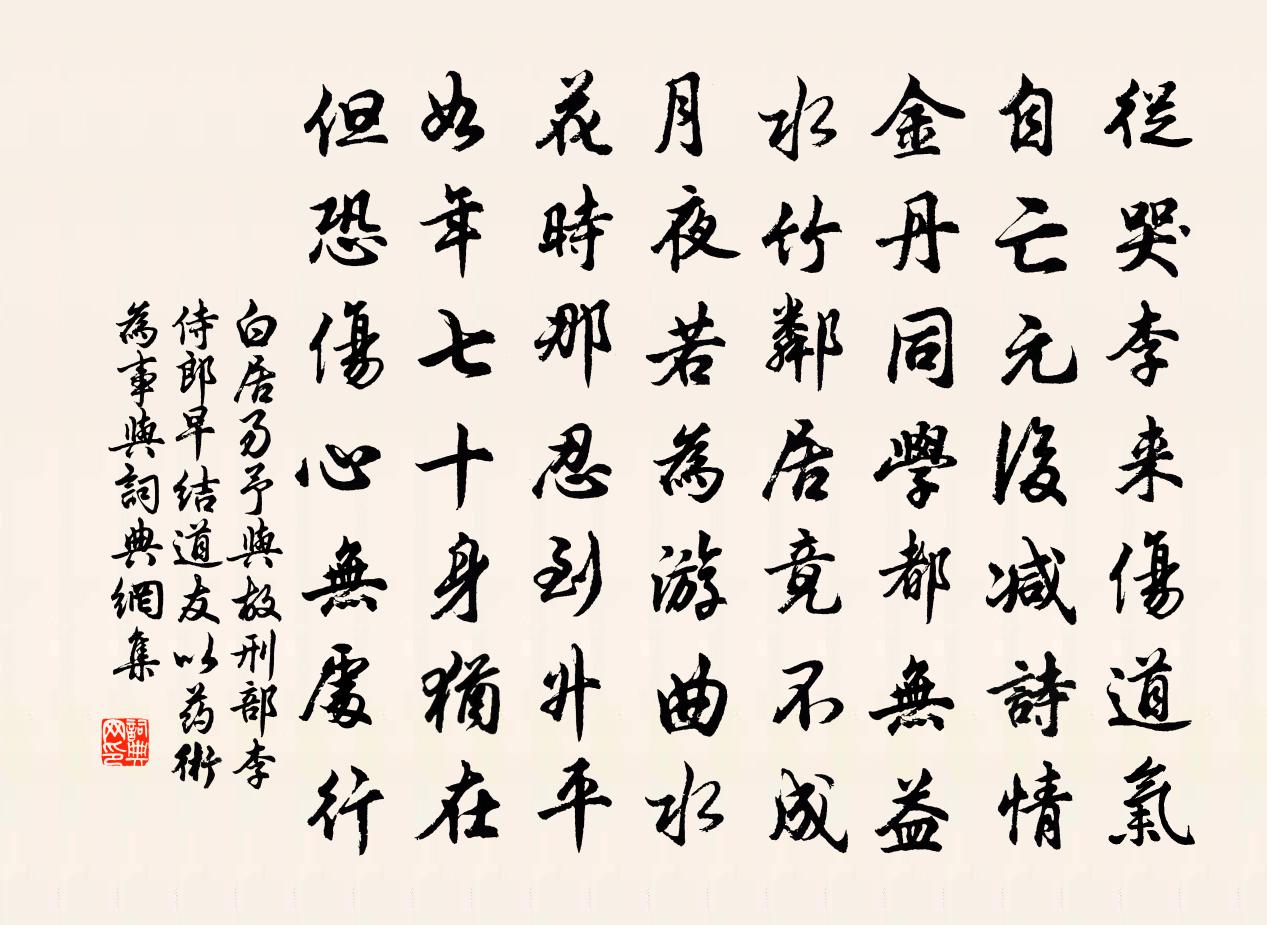 從哭李来傷道氣
自亡元後减詩情
金丹同學都無益
水竹鄰居竟不成
月夜若為游曲水
花時那忍到升平
如年七十身猶在
但恐傷心無處行
白居易予與故刑部李
侍郎早结道友以药術
為事與詞典網集
詞典网印